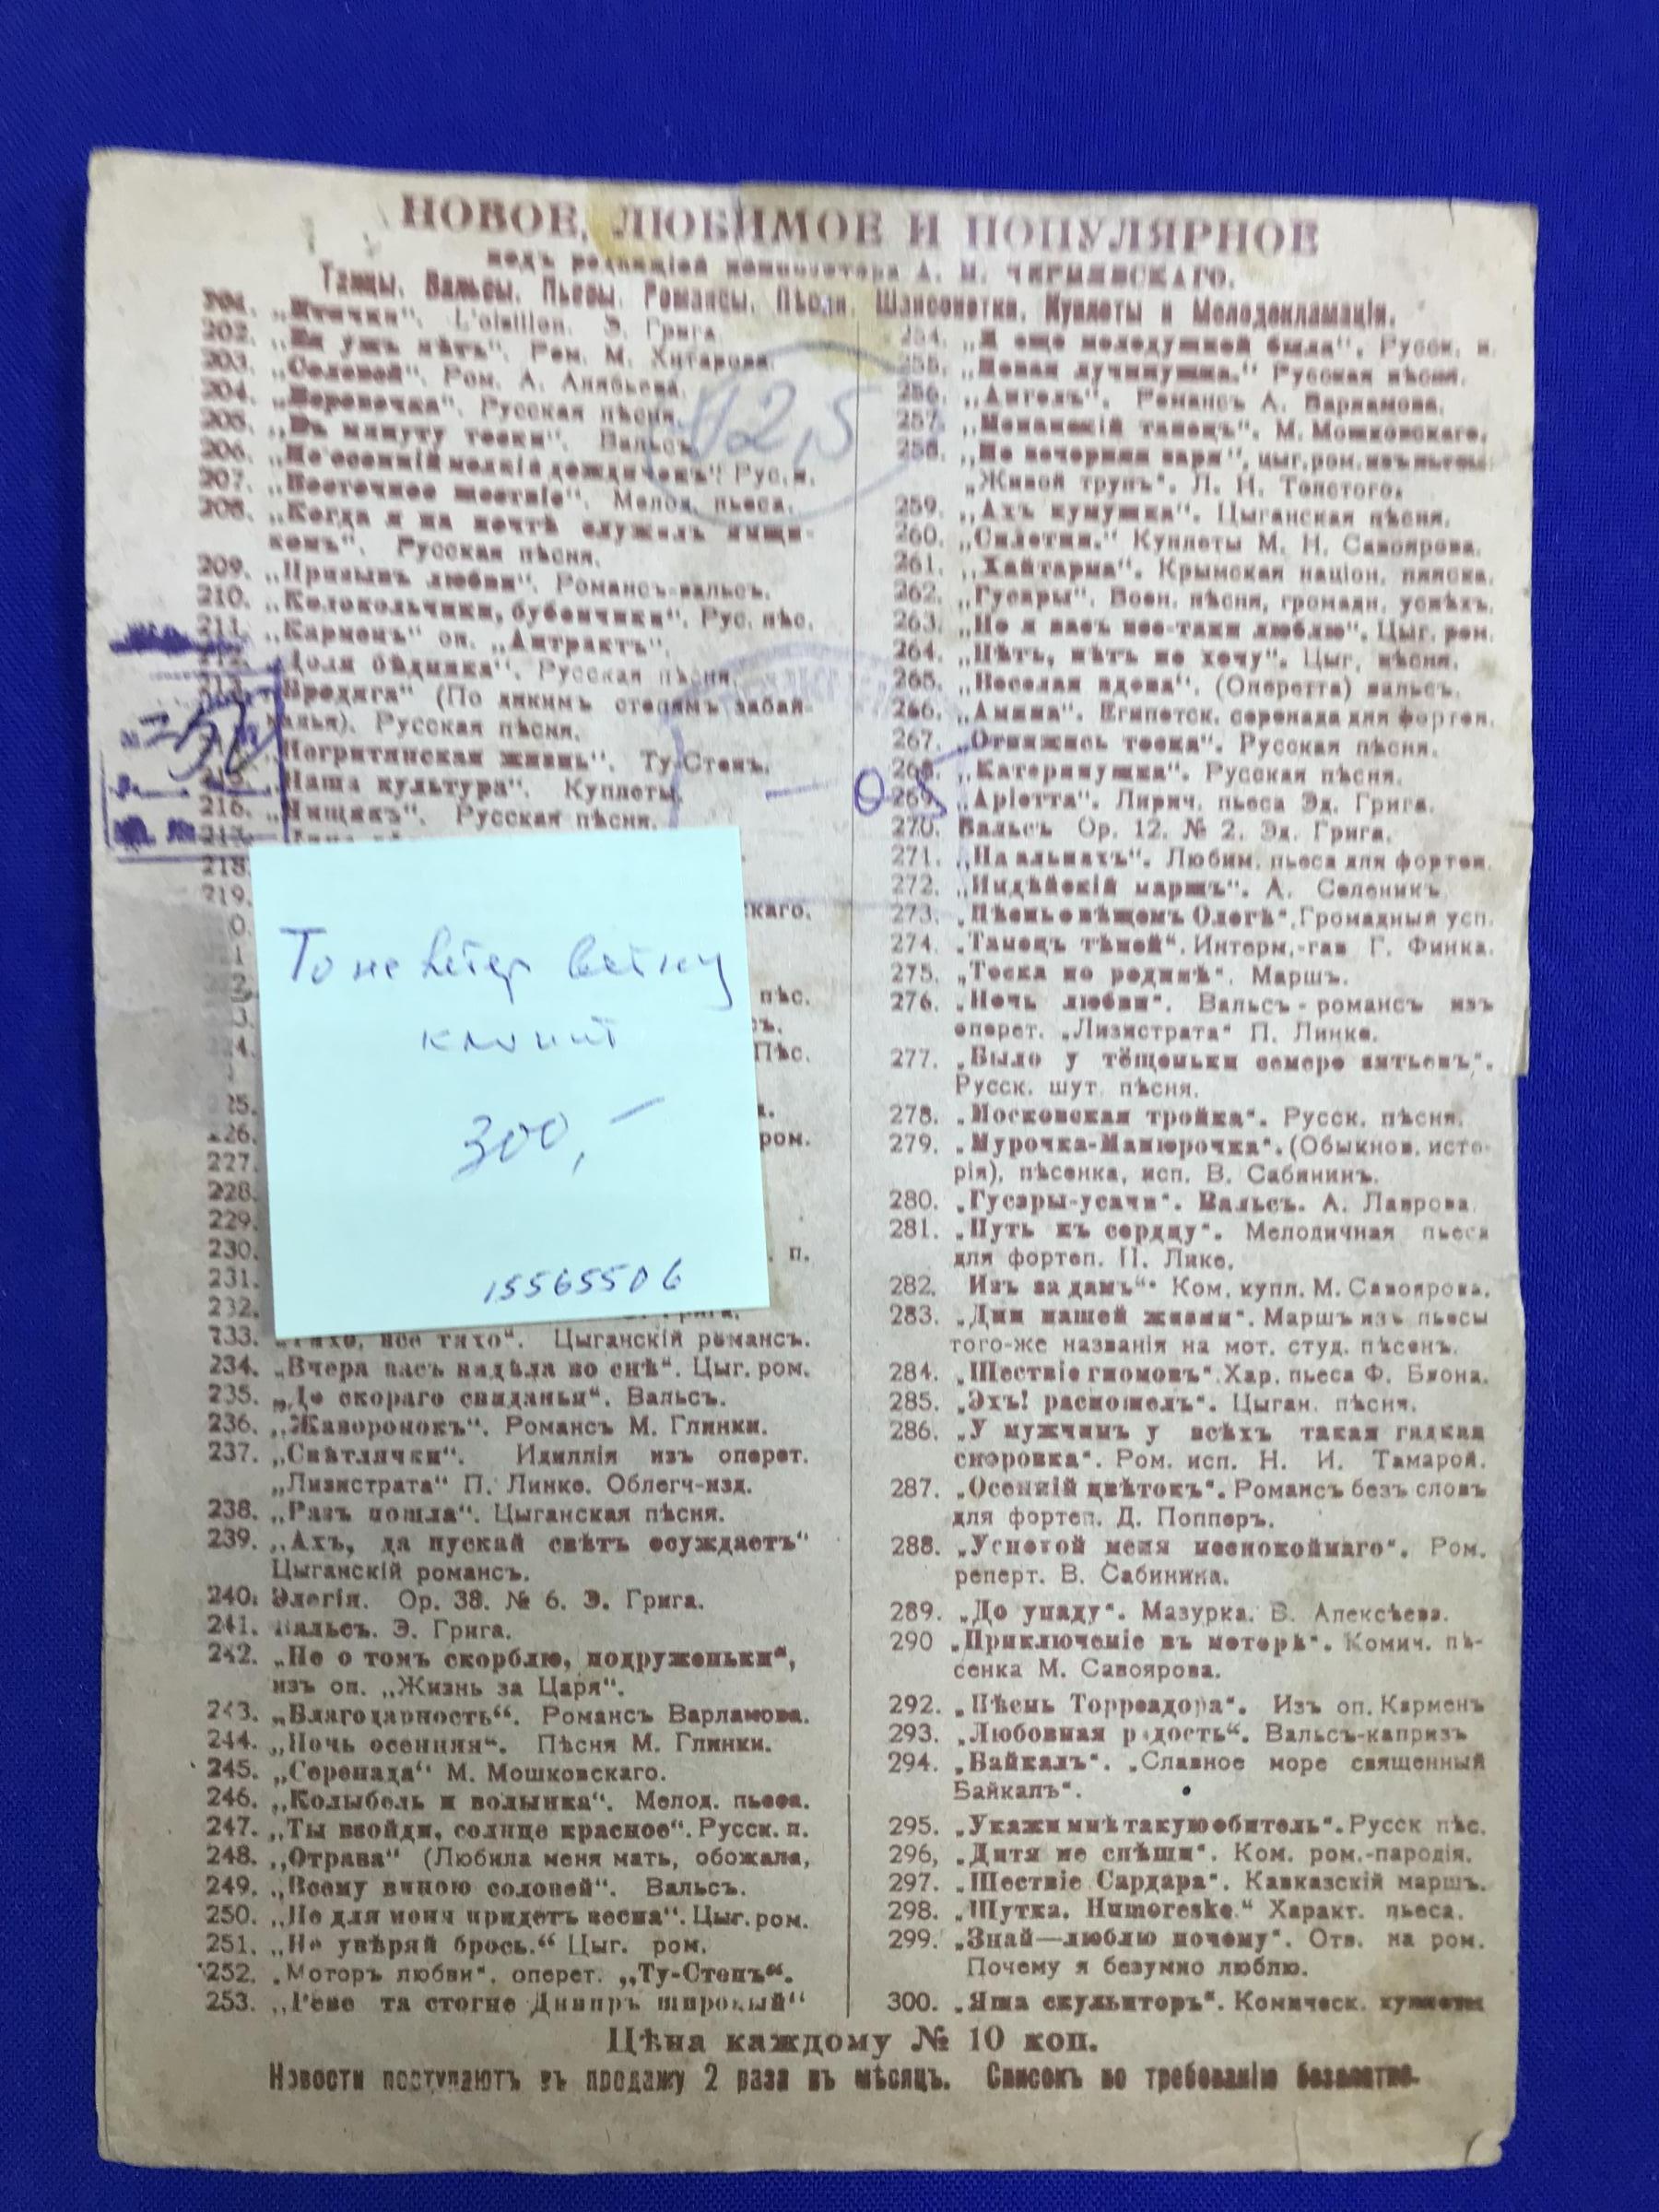 НОВОЕ, ЛЮБИМОЕ И ПОПУЛЯРНОЕ
подъ редакціей композитора А. Н. ЧЕРНЯВСКАГО.
Танцы, Вальсы, Пьесы, Романсы, Пѣсни, Шансонетки, Куплеты и Мелодекламаціи.
„Птички“. L'oisillon. Э. Грига.
202. „Ея ужъ нѣтъ“. Ром. М. Хитарова.
203. „Соловей“. Ром. А. Алябьева.
204. „Веревочка“. Русская пѣсня.
205. „Въ минуту тоски“. Вальсъ.
206. „Не осенній мелкій дождичекъ“. Рус. п.
207. „Восточное шествіе“. Мелод. пьеса.
208. „Когда я на почтѣ служилъ ямщи-
комъ“. Русская пѣсня.
209. „Призывъ любви“. Романсъ-вальсъ.
210. „Колокольчики, бубенчики“. Рус. пѣс.
211. „Карменъ“ оп. „Антрактъ“.
212. Доля бѣдняка“. Русская пѣсня.
213. Бродяга“ (По дикимъ степямъ забай-
калья). Русская пѣсня.
Негритянская жизнь“. Ту-Степъ.
215. Наша культура“. Куплеты.
216. „Ямщикъ“. Русская пѣсня.
217.
218.
219. скаго.
0.
1
2. пѣс.
3. съ.
24. Пѣс.
25.
226. ром.
227.
228.
229.
230. п.
231.
232. Грига.
233. „Тихо, все тихо“. Цыганскій романсъ.
234. „Вчера васъ видѣла во снѣ“. Цыг. ром.
235. „До скораго свиданья“. Вальсъ.
236. „Жаворонокъ“. Романсъ М. Глинки.
237. „Свѣтлячки“. Идиллія изъ оперет.
„Лизистрата“ П. Линке. Облегч-изд.
238. „Разъ пошла“. Цыганская пѣсня.
239. „Ахъ, да пускай свѣтъ осуждаетъ“
Цыганскій романсъ.
240. Элегія. Op. 38. № 6. Э. Грига.
241. Вальсъ. Э. Грига.
242. „Не о томъ скорблю, подруженьки“,
изъ оп. „Жизнь за Царя“.
243. „Благодарность“. Романсъ Варламова.
244. „Ночь осенняя“. Пѣсня М. Глинки.
245. „Серенада“ М. Мошковскаго.
246. „Колыбель и волынка“. Мелод. пьеса.
247. „Ты взойди, солнце красное“. Русск. п.
248. „Отрава“ (Любила меня мать, обожала,
249. „Всему виною соловей“. Вальсъ.
250. „Не для меня придетъ весна“. Цыг. ром.
251. „Не увѣряй брось.“ Цыг. ром.
252. „Моторъ любви“. оперет. „Ту-Степъ“.
253. „Реве та стогне Днипръ широкый“
254. „Я еще молодушкой была“. Русск. п.
255. „Новая лучинушка.“ Русская пѣсня.
256. „Ангелъ“. Романсъ А. Варламова.
257. „Испанскій танецъ“. М. Мошковскаго.
258. „Не вечерняя заря“, цыг. ром. изъ пьесы
„Живой трупъ“. Л. Н. Толстого.
259. „Ахъ кумушка“. Цыганская пѣсня.
260. „Сплетни.“ Куплеты М. Н. Савоярова.
261. „Хайтарма“. Крымская націон. пляска.
262. „Гусары“. Воен. пѣсня, громадн. успѣхъ.
263. „Но я васъ все-таки люблю“. Цыг. ром.
264. „Нѣтъ, нѣтъ не хочу“. Цыг. пѣсня.
265. „Веселая вдова“. (Оперетта) вальсъ.
266. „Амина“. Египетск. серенада для фортеп.
267. „Отвяжись тоска“. Русская пѣсня.
268. „Катеринушка“. Русская пѣсня.
269. „Аріетта“. Лирич. пьеса Эд. Грига.
270. Вальсъ Op. 12. № 2. Эд. Грига.
271. „На альпахъ“. Любим. пьеса для фортеп.
272. „Индѣйскій маршъ“. А. Селеникъ.
273. „Пѣснь о вѣщемъ Олегѣ“. Громадный усп.
274. „Танецъ тѣней“. Интерм.-гав Г. Финка.
275. „Тоска по родинѣ“. Маршъ.
276. „Ночь любви“. Вальсъ-романсъ изъ
оперет. „Лизистрата“ П. Линке.
277. „Было у тёщеньки семеро зятьевъ“.
Русск. шут. пѣсня.
278. „Московская тройка“. Русск. пѣсня.
279. „Мурочка-Манюрочка“. (Обыкнов. исто-
рія), пѣсенка, исп. В. Сабининъ.
280. „Гусары-усачи“. Вальсъ. А. Лаврова.
281. „Путь къ сердцу“. Мелодичная пьеса
для фортеп. П. Лике.
282. Изъ за дамъ“. Ком. купл. М. Савоярова.
283. „Дни нашей жизни“. Маршъ изъ пьесы
того-же названія на мот. студ. пѣсенъ.
284. „Шествіе гномовъ“. Хар. пьеса Ф. Блона.
285. „Эхъ! распошелъ“. Цыган. пѣсня.
286. „У мужчинъ у всѣхъ такая гадкая
сноровка“. Ром. исп. Н. И. Тамарой.
287. „Осенній цвѣтокъ“. Романсъ безъ словъ
для фортеп. Д. Попперъ.
288. „Успокой меня неспокойнаго“. Ром.
реперт. В. Сабинина.
289. „До упаду“. Мазурка. В. Алексѣева.
290 „Приключеніе въ моторѣ“. Комич. пѣ-
сенка М. Савоярова.
292. „Пѣснь Торреадора“. Изъ оп. Карменъ
293. „Любовная радость“. Вальсъ-капризъ
294. „Байкалъ“. „Славное море священный
Байкалъ“.
295. „Укажи мнѣ такую обитель“. Русск пѣс.
296, „Дитя не спѣши“. Ком. ром.-пародія.
297. „Шествіе Сардара“. Кавказскій маршъ.
298. „Шутка. Humoreske.“ Характ. пьеса.
299. „Знай—люблю почему“. Отв. на ром.
Почему я безумно люблю.
300. „Яша скульпторъ“. Комическ. куплеты
Цѣна каждому № 10 коп.
Новости поступаютъ въ продажу 2 раза въ мѣсяцъ. Списокъ по требованію безплатно.
12,5
0
То не ветер ветку
клонит
300,-
15565506